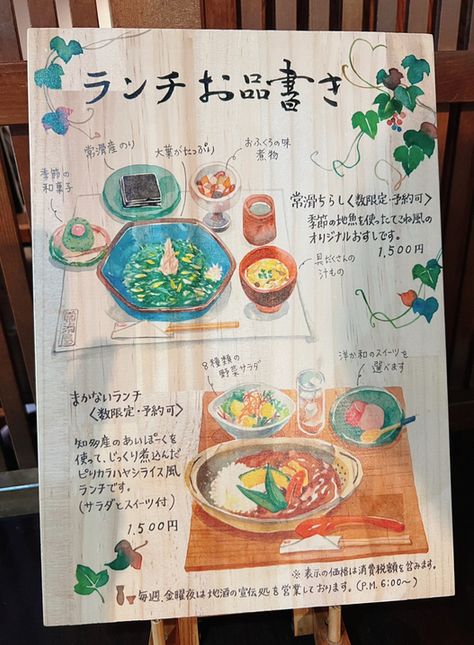 ランチお品書き
季節の
和菓子
常滑産のり
大葉がたっぷり
おふくろの味
煮物
常滑ちらし〈数限定・予約可〉
季節の地魚を使ったてこね風の
オリジナルおすしです。
1,500円
具だくさんの
汁もの
常滑屋
8種類の
野菜サラダ
洋か和のスイーツを
選べます
まかないランチ
〈数限定・予約可〉
知多産のあいぽーくを
使って、じっくり煮込んだ
ピリカラハヤシライス風
ランチです。
(サラダとスイーツ付)
1,500円
※表示の価格は消費税額を含みます。
毎週、金曜夜は地酒の宣伝処を営業しております。(P.M. 6:00〜)